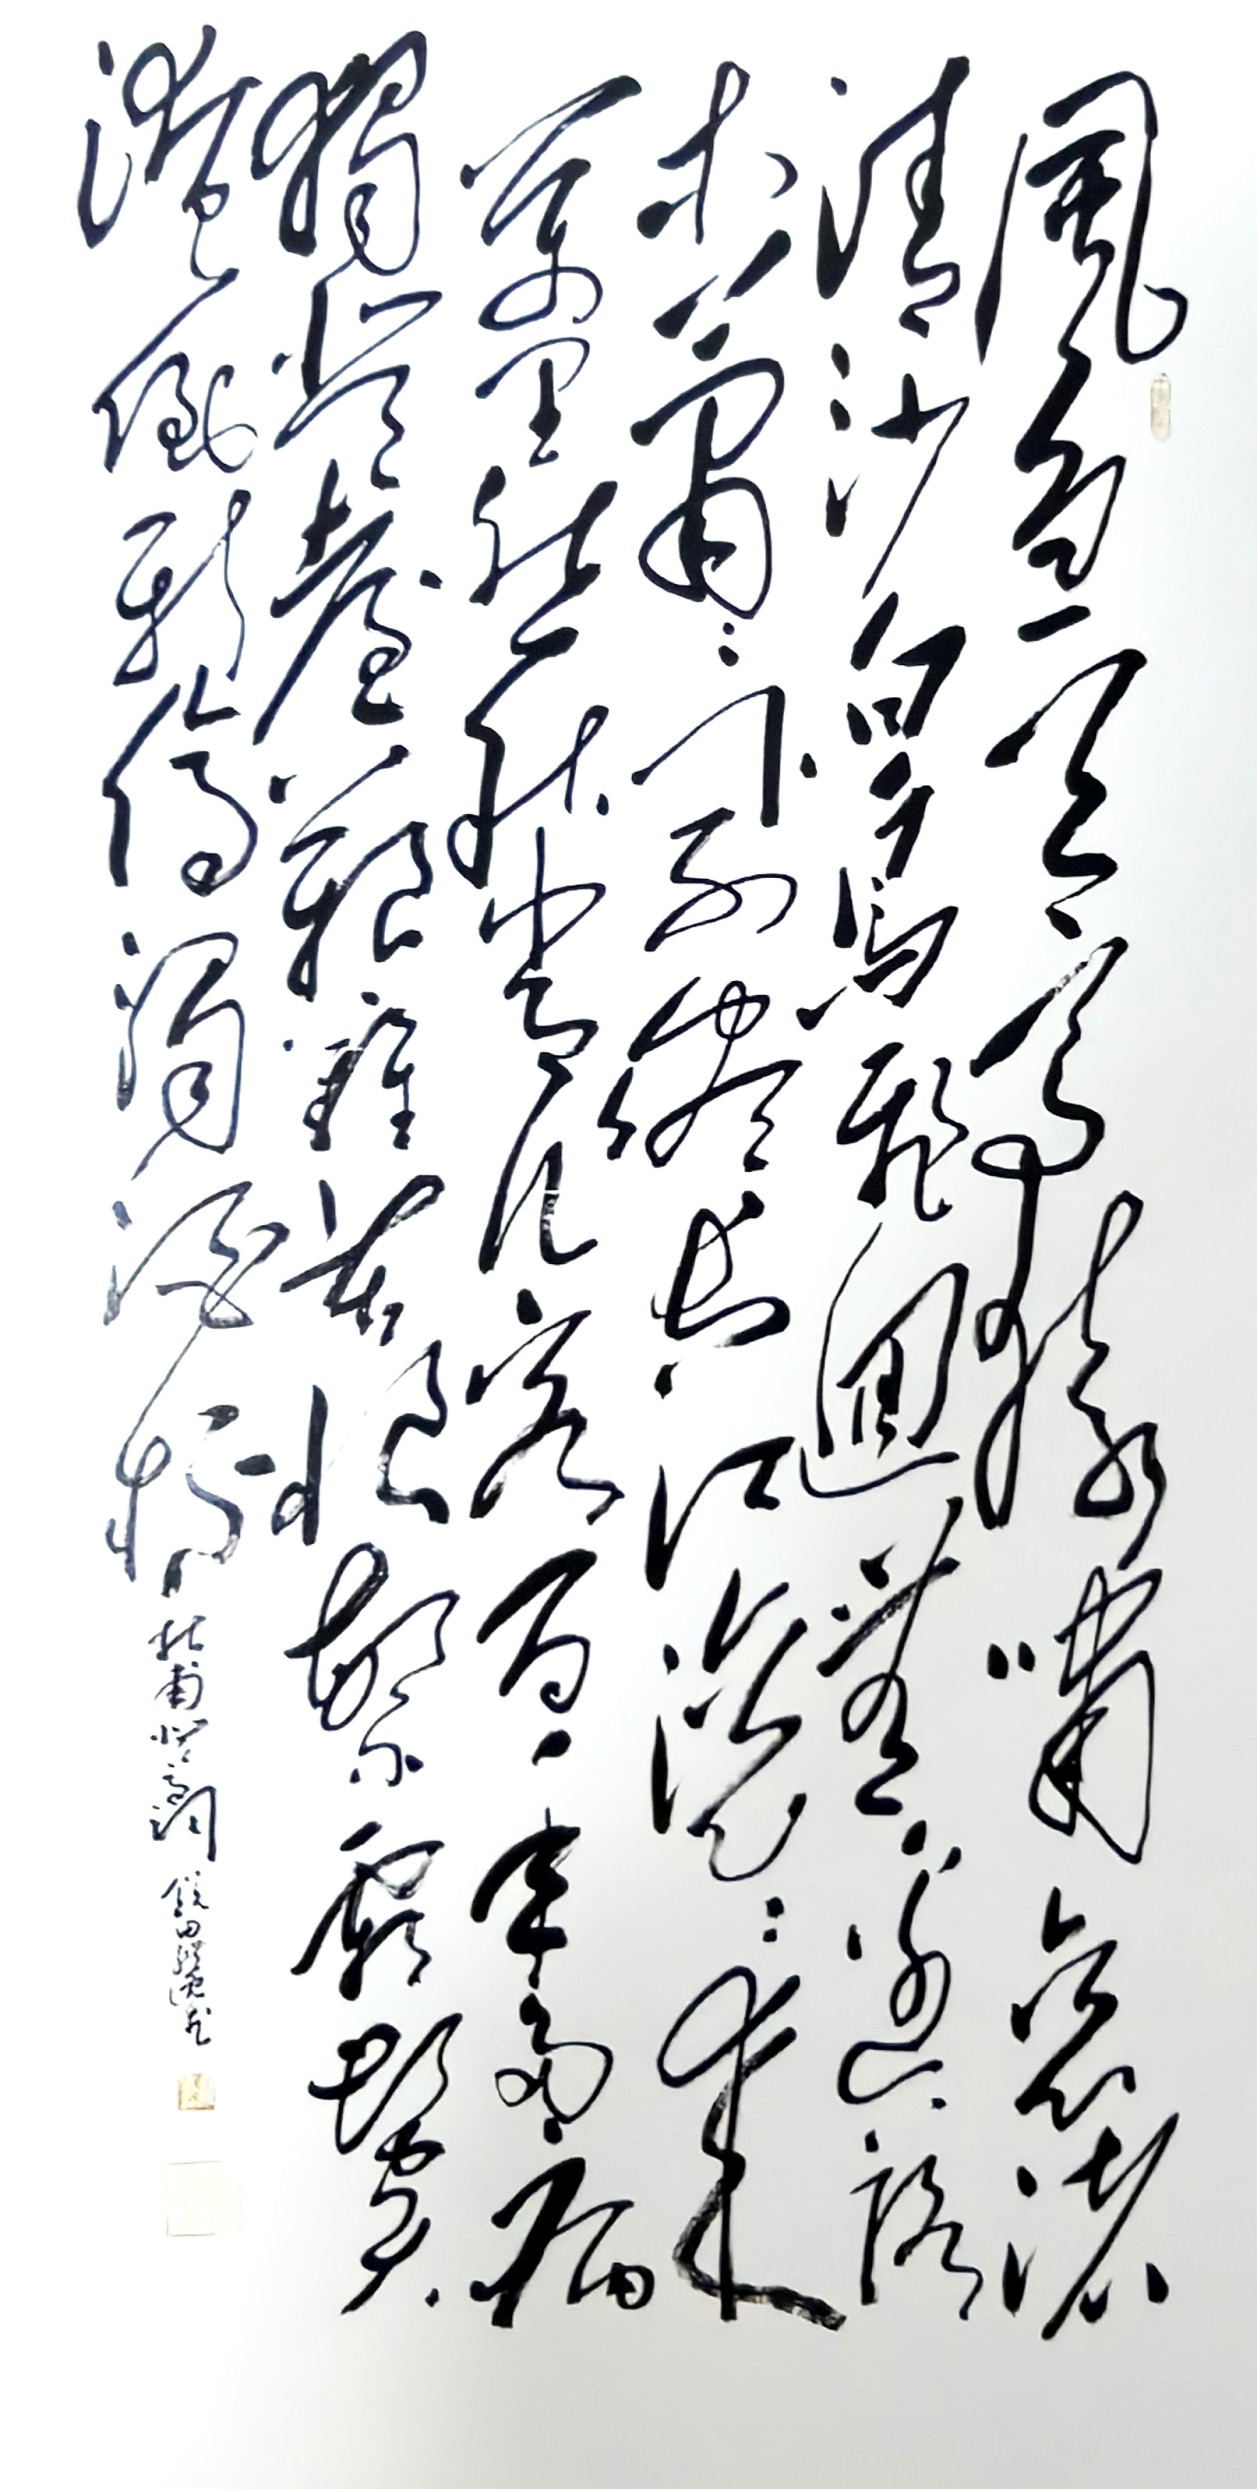 風急天高猿嘯哀渚
清沙白鳥飛迴無邊落
木蕭〻下不盡長江滾〻來
萬里悲秋常作客百年多病
獨登臺艱難苦恨繁霜鬢
潦倒新停濁酒杯 杜甫登高